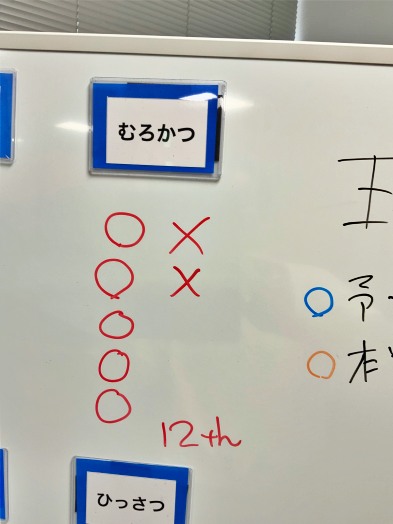 むろかつ
○ ×
○ ×
○
○
○
12th
ひっさつ
王
○ 予
○ 本